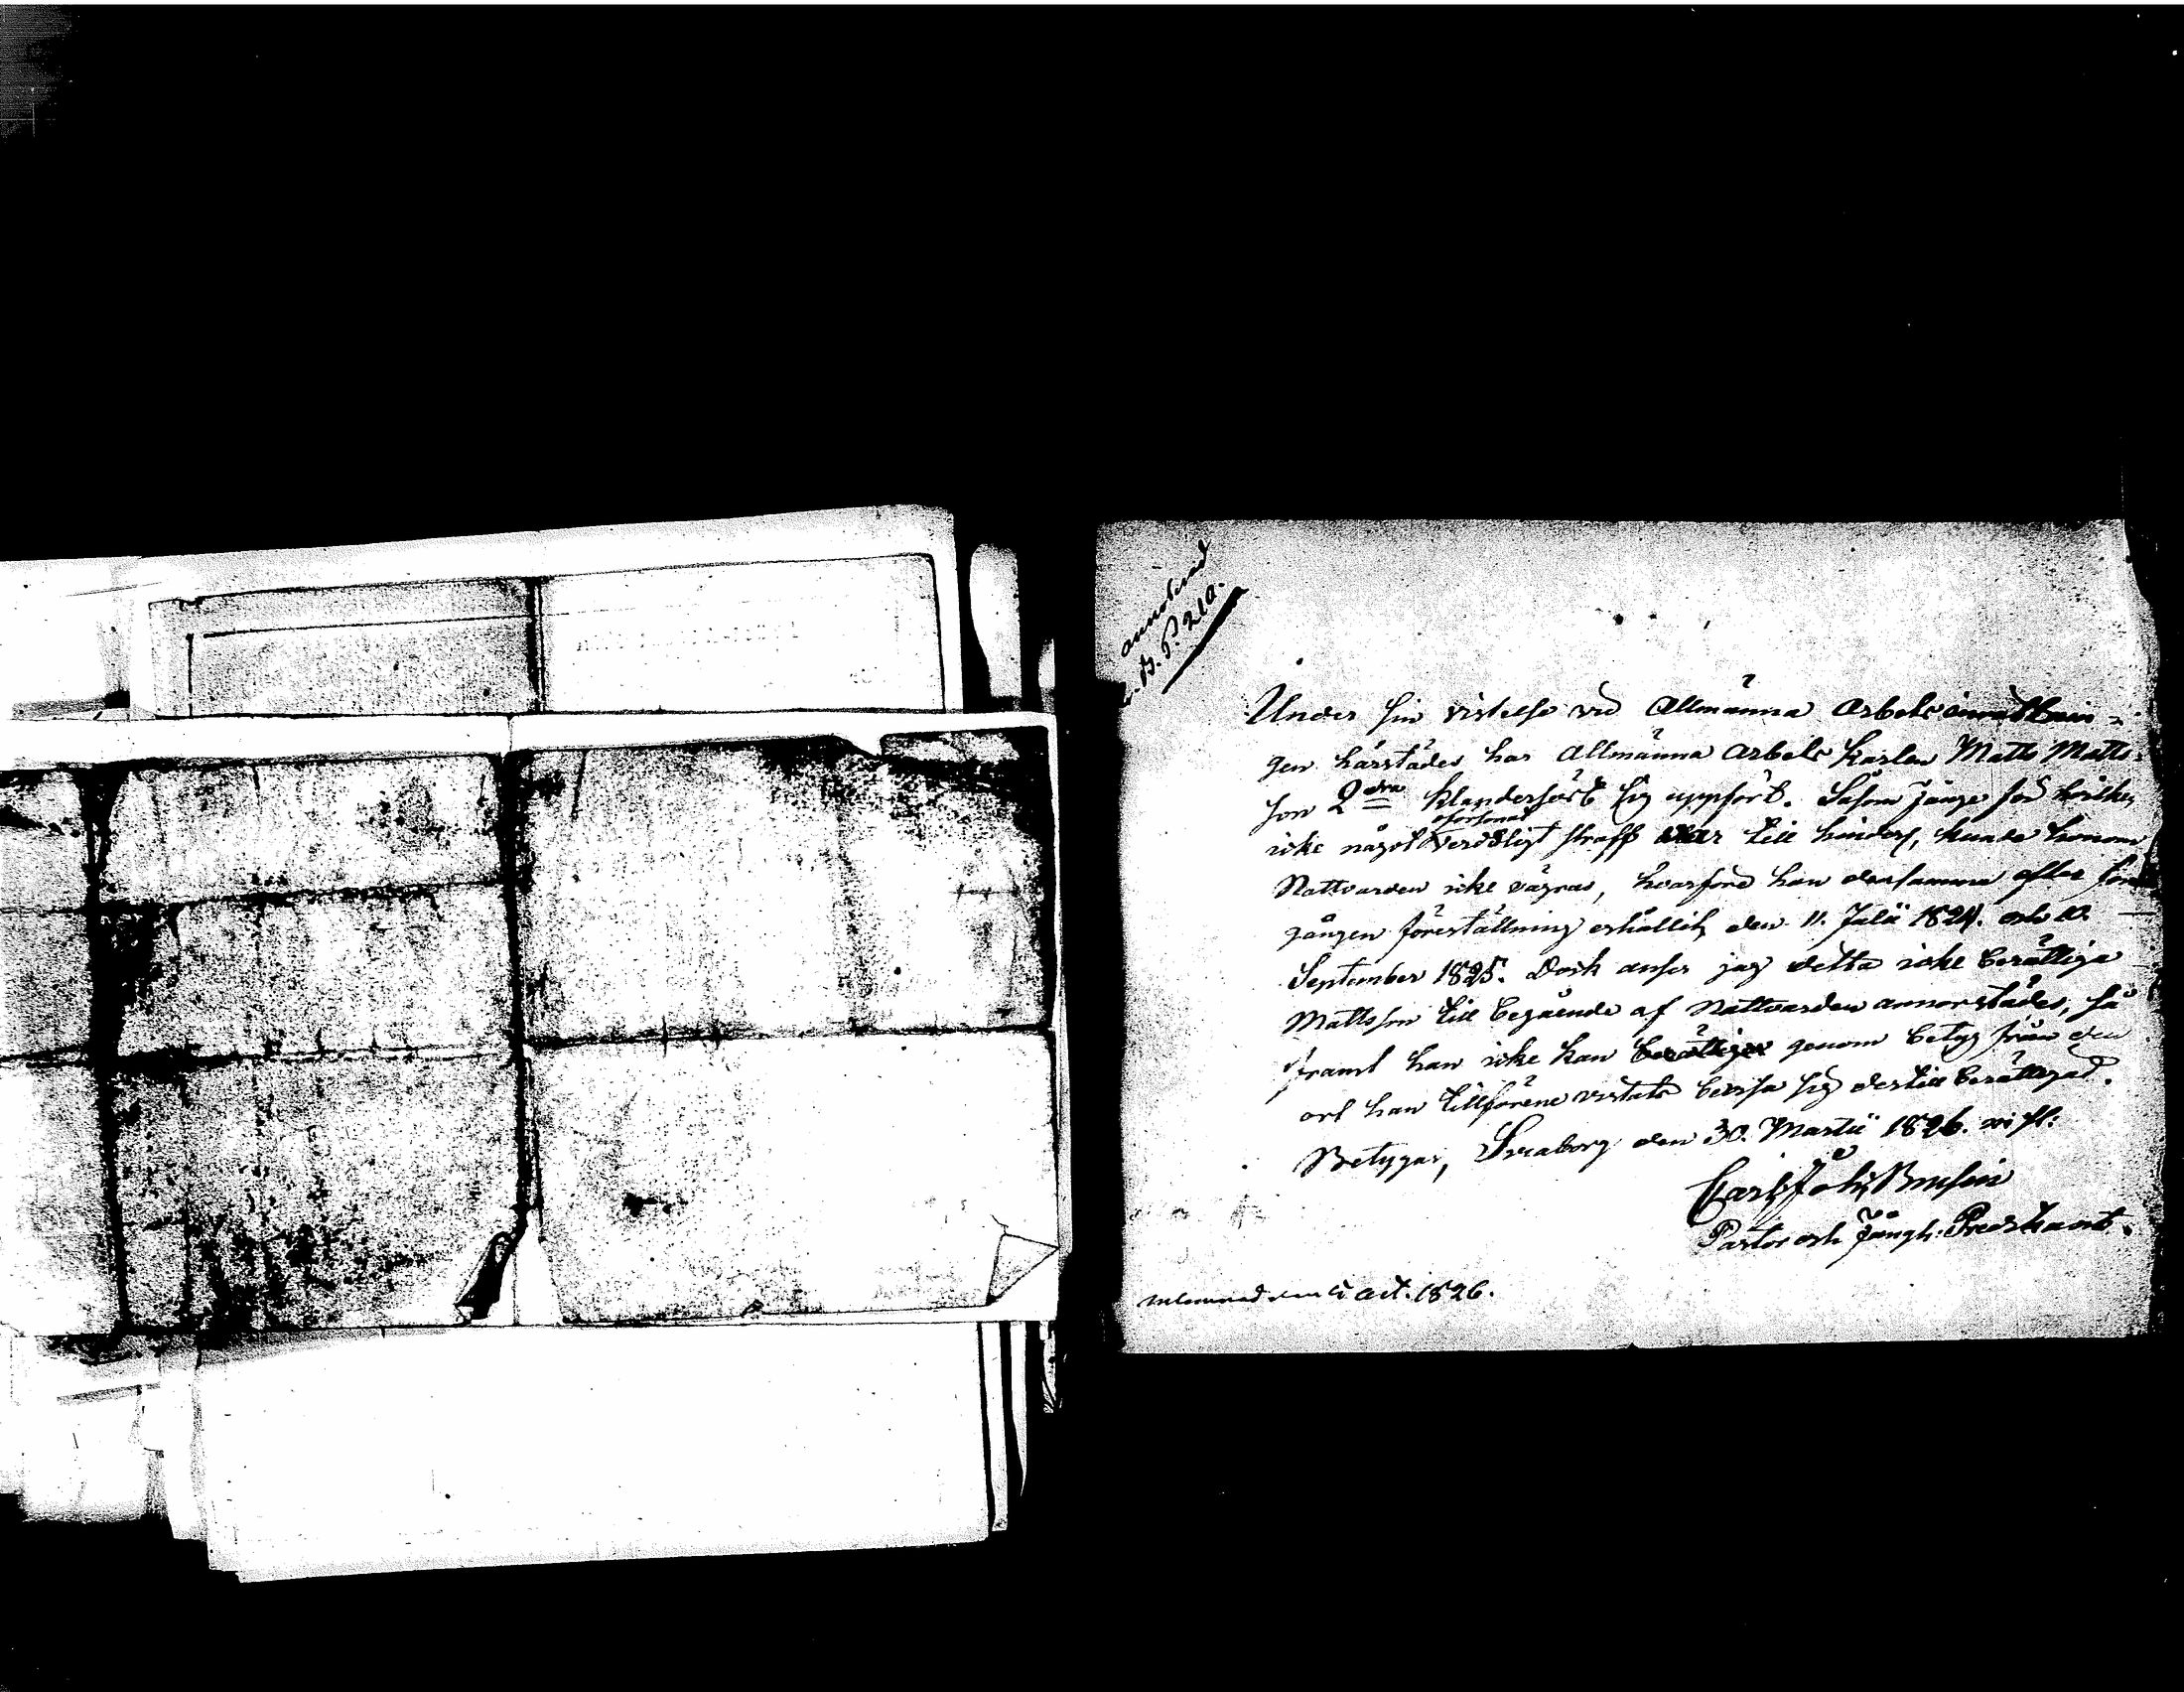 annoterad
L. B. P. 210.
Under sin vistelse vid Allmänna Arbets inrättnin-
gen härstädes har Allmänna Arbets Karlen Matts Matts-
son 2dra klanderfört sig uppfört. Såsom fånge för hvilken
oförsonat
icke något verdsligt straff är till hinders, kunde honom
Nattvarden icke vägras, hvarföre han densamma efter före-
gången föreställning erhållit den 11. Julii 1824. och 10.
September 1825. Dock anser jag detta icke berättiga
Mattsson till begående af Nattvarden annorstädes, så
framt han icke kan genom betyg från den
ort han tillförene vistats bevisa sig dertill berättigad.
Betygar, Sveaborg den 30. Martii 1826. v. st.
Carl Joh.
Pastor och Fångh: Predikant.
inlemnad den 5 oct. 1826.